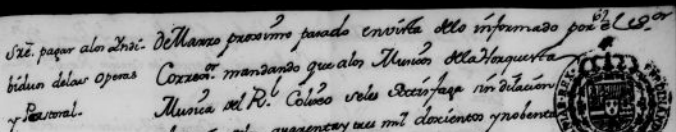 Sre. pagar alos Yndi-
biduos delas Operas
y Pastoral.
62
de Marzo proximo pasado envista dello informado por el Sor
Corregor. mandando que alos Musicos de la Horquesta
Musica del Rl. Coliseo seles Satisfaga sin dilacion
quarenta y tres mil doscientos y nobenta